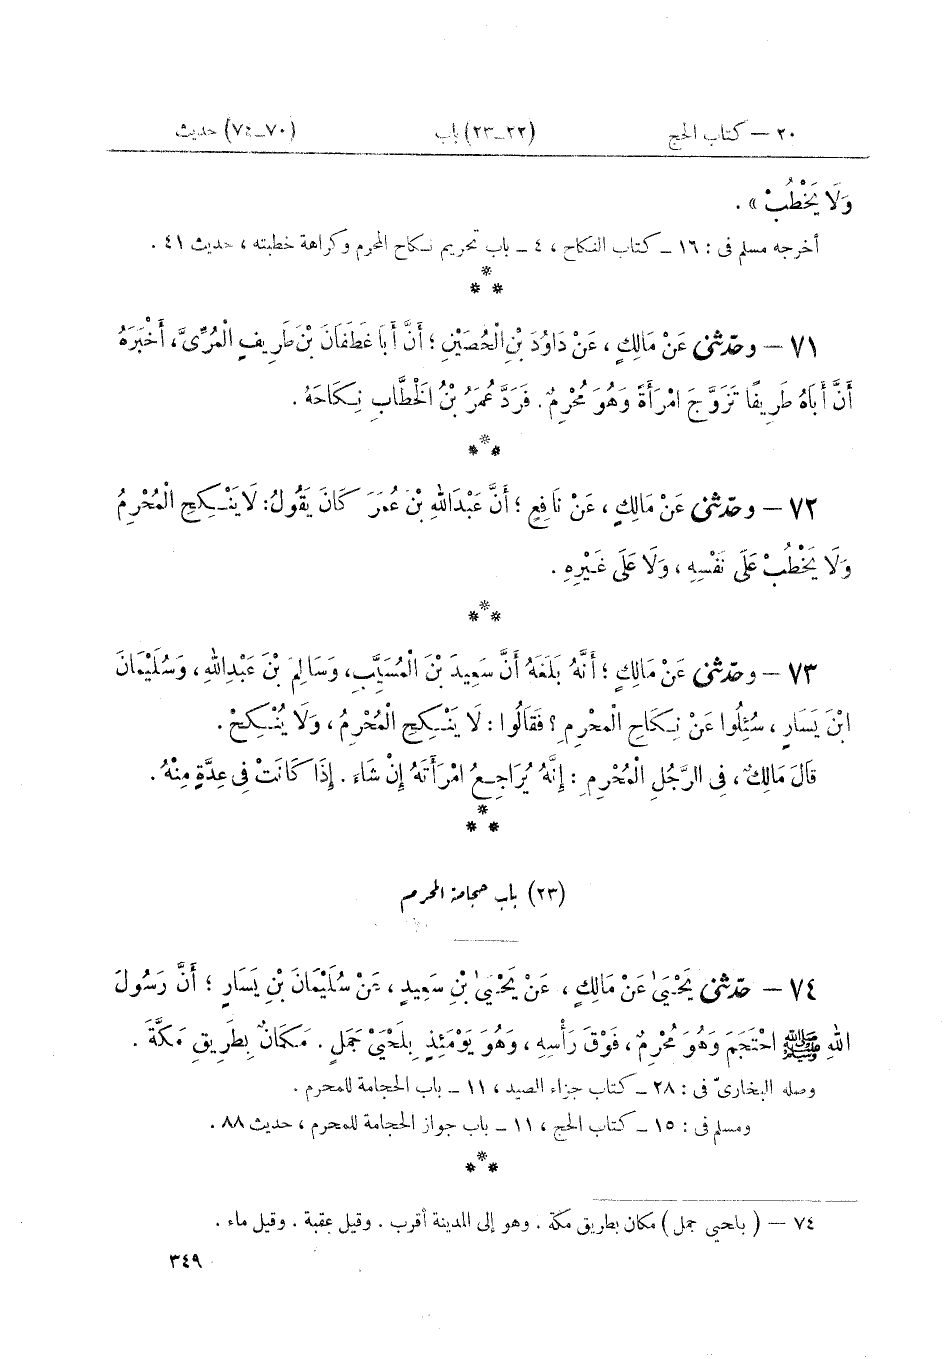 ٢٠ – كتاب الحج (٢٢-٢٣) باب (٧٠-٧٤) حديث
وَلَا يَخْطُبُ » .
أخرجه مسلم فى : ١٦ – كتاب النكاح ، ٤ – باب تحريم نكاح المحرم وكراهة خطبته ، حديث ٤١ .
*
* *
٧١ – وحدّثنى عَنْ مَالِكٍ ، عَنْ دَاوُدَ بْنِ الْحُصَيْنِ ؛ أَنَّ أَبَا غَطَفَانَ بْنَ طَرِيفٍ الْمُرِّىَّ ، أَخْبَرَهُ
أَنَّ أَبَاهُ طَرِيفًا تَزَوَّجَ امْرَأَةً وَهُوَ مُحْرِمٌ . فَرَدَّ عُمَرُ بْنُ الْخَطَّابِ نِكَاحَهُ .
*
* *
٧٢ – وحدّثنى عَنْ مَالِكٍ ، عَنْ نَافِعٍ ؛ أَنَّ عَبْدَ اللهِ بْنَ عُمَرَ كَانَ يَقُولُ : لَا يَنْكِحِ الْمُحْرِمُ
وَلَا يَخْطُبْ عَلَى نَفْسِهِ ، وَلَا عَلَى غَيْرِهِ .
*
* *
٧٣ – وحدّثنى عَنْ مَالِكٍ ؛ أَنَّهُ بَلَغَهُ أَنَّ سَعِيدَ بْنَ الْمُسَيَّبِ ، وَسَالِمَ بْنَ عَبْدِ اللهِ ، وَسُلَيْمَانَ
ابْنَ يَسَارٍ ، سُئِلُوا عَنْ نِكَاحِ الْمُحْرِمِ ؟ فَقَالُوا : لَا يَنْكِحِ الْمُحْرِمُ ، وَلَا يُنْكِحْ .
قَالَ مَالِكٌ ، فِى الرَّجُلِ الْمُحْرِمِ : إِنَّهُ يُرَاجِعُ امْرَأَتَهُ إِنْ شَاءَ . إِذَا كَانَتْ فِى عِدَّةٍ مِنْهُ .
*
* *
(٢٣) باب حجامة المحرم
٧٤ – حدّثنى يَحْيَىٰ عَنْ مَالِكٍ ، عَنْ يَحْيَىٰ بْنِ سَعِيدٍ ، عَنْ سُلَيْمَانَ بْنِ يَسَارٍ ؛ أَنَّ رَسُولَ
اللهِ ﷺ احْتَجَمَ وَهُوَ مُحْرِمٌ ، فَوْقَ رَأْسِهِ ، وَهُوَ يَوْمَئِذٍ بِلَحْيَىْ جَمَلٍ . مَكَانٌ بِطَرِيقِ مَكَّةَ .
وصله البخارىّ فى : ٢٨ – كتاب جزاء الصيد ، ١١ – باب الحجامة للمحرم .
ومسلم فى : ١٥ – كتاب الحج ، ١١ – باب جواز الحجامة للمحرم ، حديث ٨٨ .
*
* *
٧٤ – ( بلحيى جمل ) مكان بطريق مكة . وهو إلى المدينة أقرب . وقيل عقبة . وقيل ماء .
٣٤٩